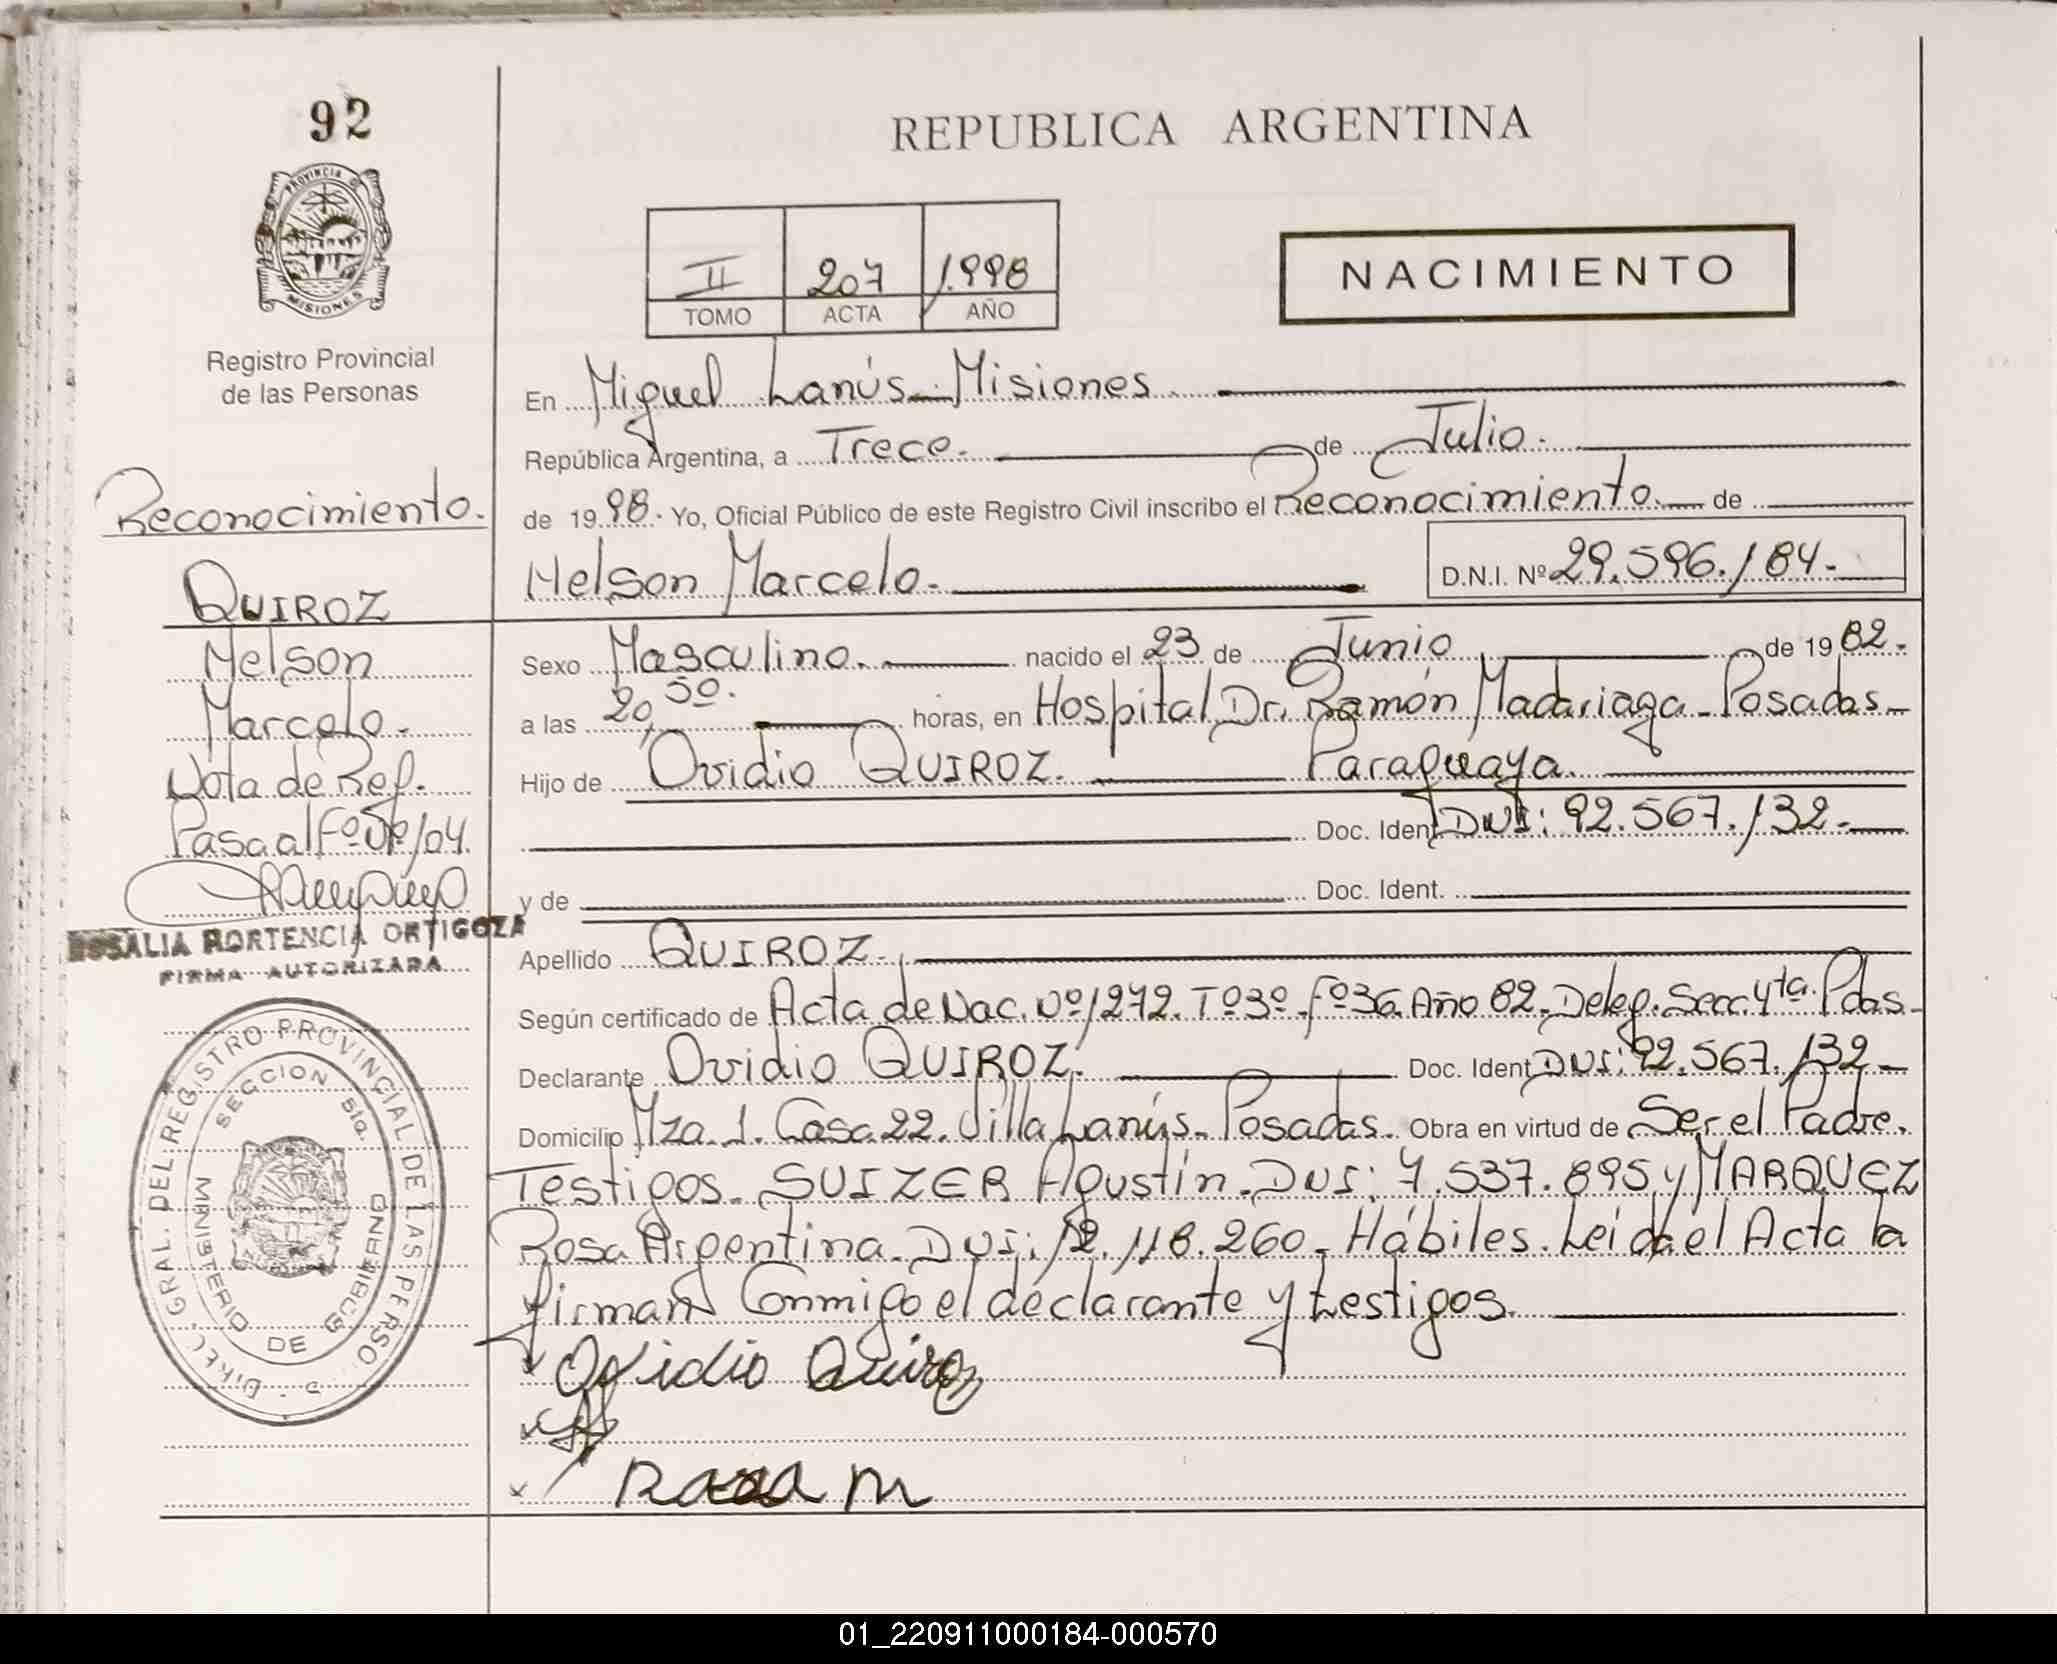 92
REPUBLICA ARGENTINA
PROVINCIA D
MISIONES
Registro Provincial
de las Personas
II 207 1.998
TOMO ACTA AÑO
NACIMIENTO
En Miguel Lanús - Misiones.
República Argentina, a Trece. de Julio.
de 19 98. Yo, Oficial Público de este Registro Civil inscribo el Reconocimiento. de
Nelson Marcelo. D.N.I. Nº 29.596.184.
Sexo Masculino. nacido el 23 de Junio de 19 82.
a las 20,50. horas, en Hospital Dr. Ramón Madariaga - Posadas -
Hijo de Ovidio QUIROZ. Paraguaya.
Doc. Ident. DNI: 92.567.132.
y de Doc. Ident.
Apellido QUIROZ.
Según certificado de Acta de Nac. Nº 1272. Tº 3º Fº 36. Año 82. Deleg. Secc. 4ta. Pdas.
Declarante Ovidio QUIROZ. Doc. Ident. DNI: 92.567.132
Domicilio Mza. 1. Casa 22. Villa Lanús. Posadas. Obra en virtud de Ser el Padre.
Testigos. SUIZER Agustín. DNI: 7.537.895 y MARQUEZ
Rosa Argentina. DNI: 12.118.260. Hábiles. Leida el Acta la
firman Conmigo el declarante y testigos.
x Ovidio Quiroz
x
x Rosa M
Reconocimiento.
QUIROZ
Nelson
Marcelo.
Nota de Ref.
Pasa al Fº Nº 104.
ROSALIA HORTENCIA ORTIGOZA
FIRMA AUTORIZADA
DIREC. GRAL. DEL REGISTRO PROVINCIAL DE LAS PERSO
SECCION 5ta.
MINISTERIO DE GOBIERNO
01_220911000184-000570